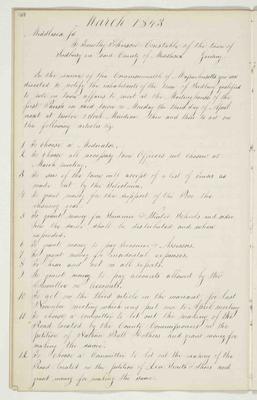 March 1843
Middlesex ss
To                 Constable of the town of
Sudbury in said County of Middlesex          Greeting
In the name of the Commonwealth of Massachusetts you are
directed to notify the inhabitants of the town of Sudbury qualified
to vote in town affairs to meet at the Meetinghouse of the
first Parish in said town on Monday the third day of April
next at twelve o'clock Meridian then and there to act on
the following articles viz.
1 To choose a Moderator.
2 To choose all necessary town Officers not chosen at
March meeting.
3 To see if the town will accept of a list of Jurors as
made out by the Selectmen.
4 To grant money for the support of the Poor the
ensuing year.
5 To grant money for Summer & Winter Schools and order
how the same shall be distributed and when
expended.
6 To grant money to pay Treasurer & Assessors.
7 To grant money for incidental expenses.
8 To hear and act on all reports.
9 To grant money to pay accounts allowed by the
Committee on Accounts.
10 To act on the third article in the warrant for last
November meeting which was put over to this meeting
11 To choose a committee to let out the making of the
Road located by the County Commissioners on the
petition of                & others and grant money for
making the same.
12 To choose a Committee to let out the making of the
Road located on the petition of            & others and
grant money for making the same.